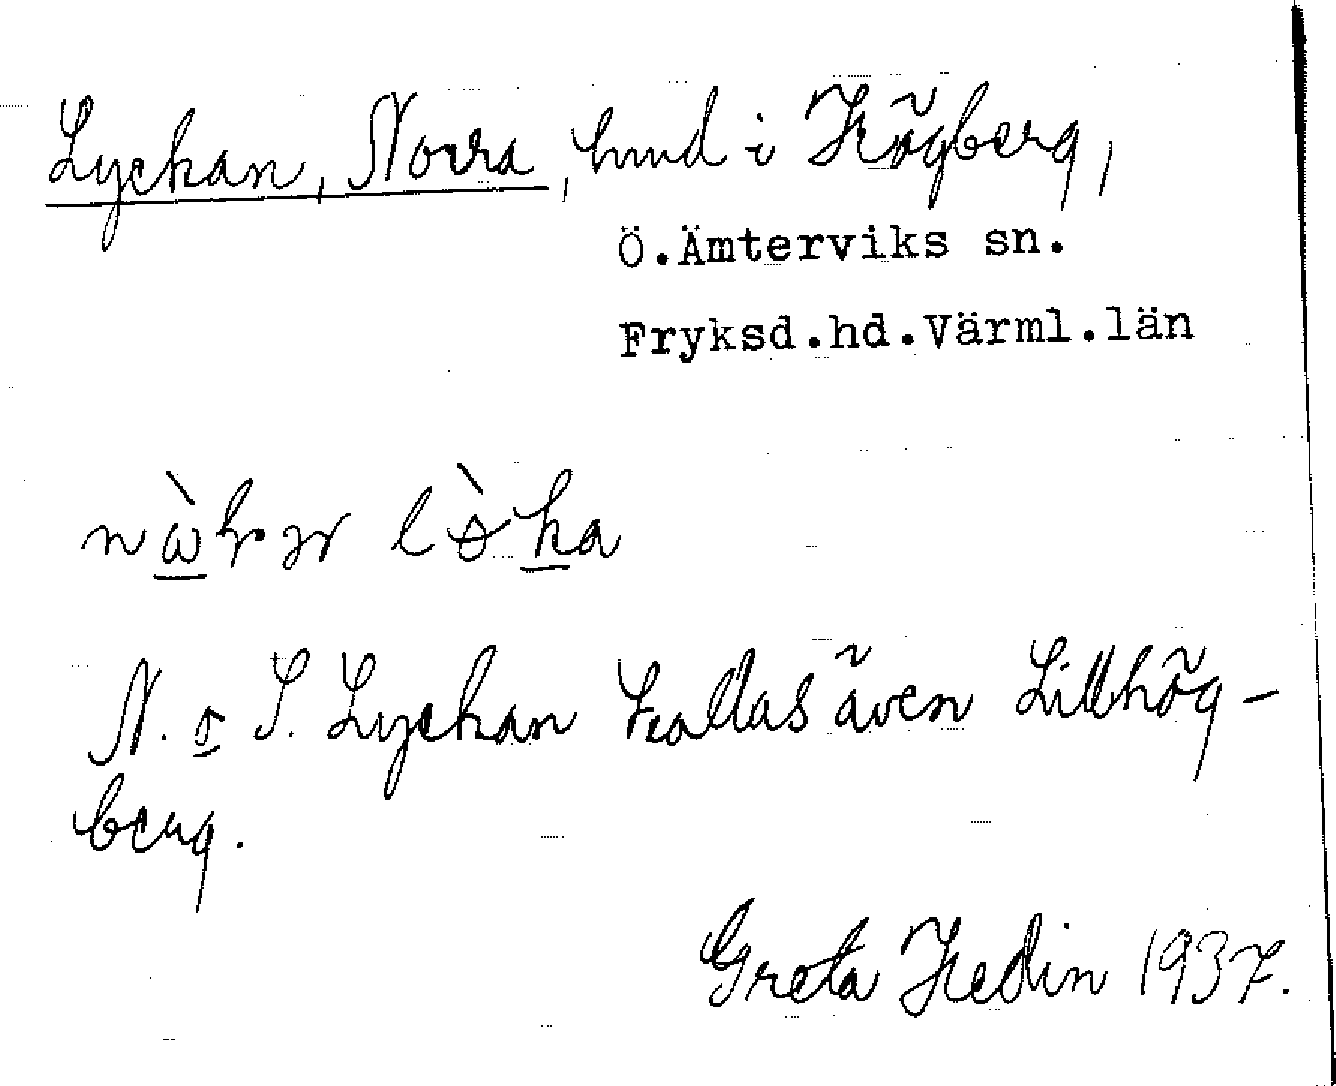 Lyckan, Norra, hmd i Högberg,
Ö.Ämterviks sn.
Fryksd.hd.Värml.län
N. o S. Lyckan kallas även Lillhög-
berg.
Greta Hedin 1937.